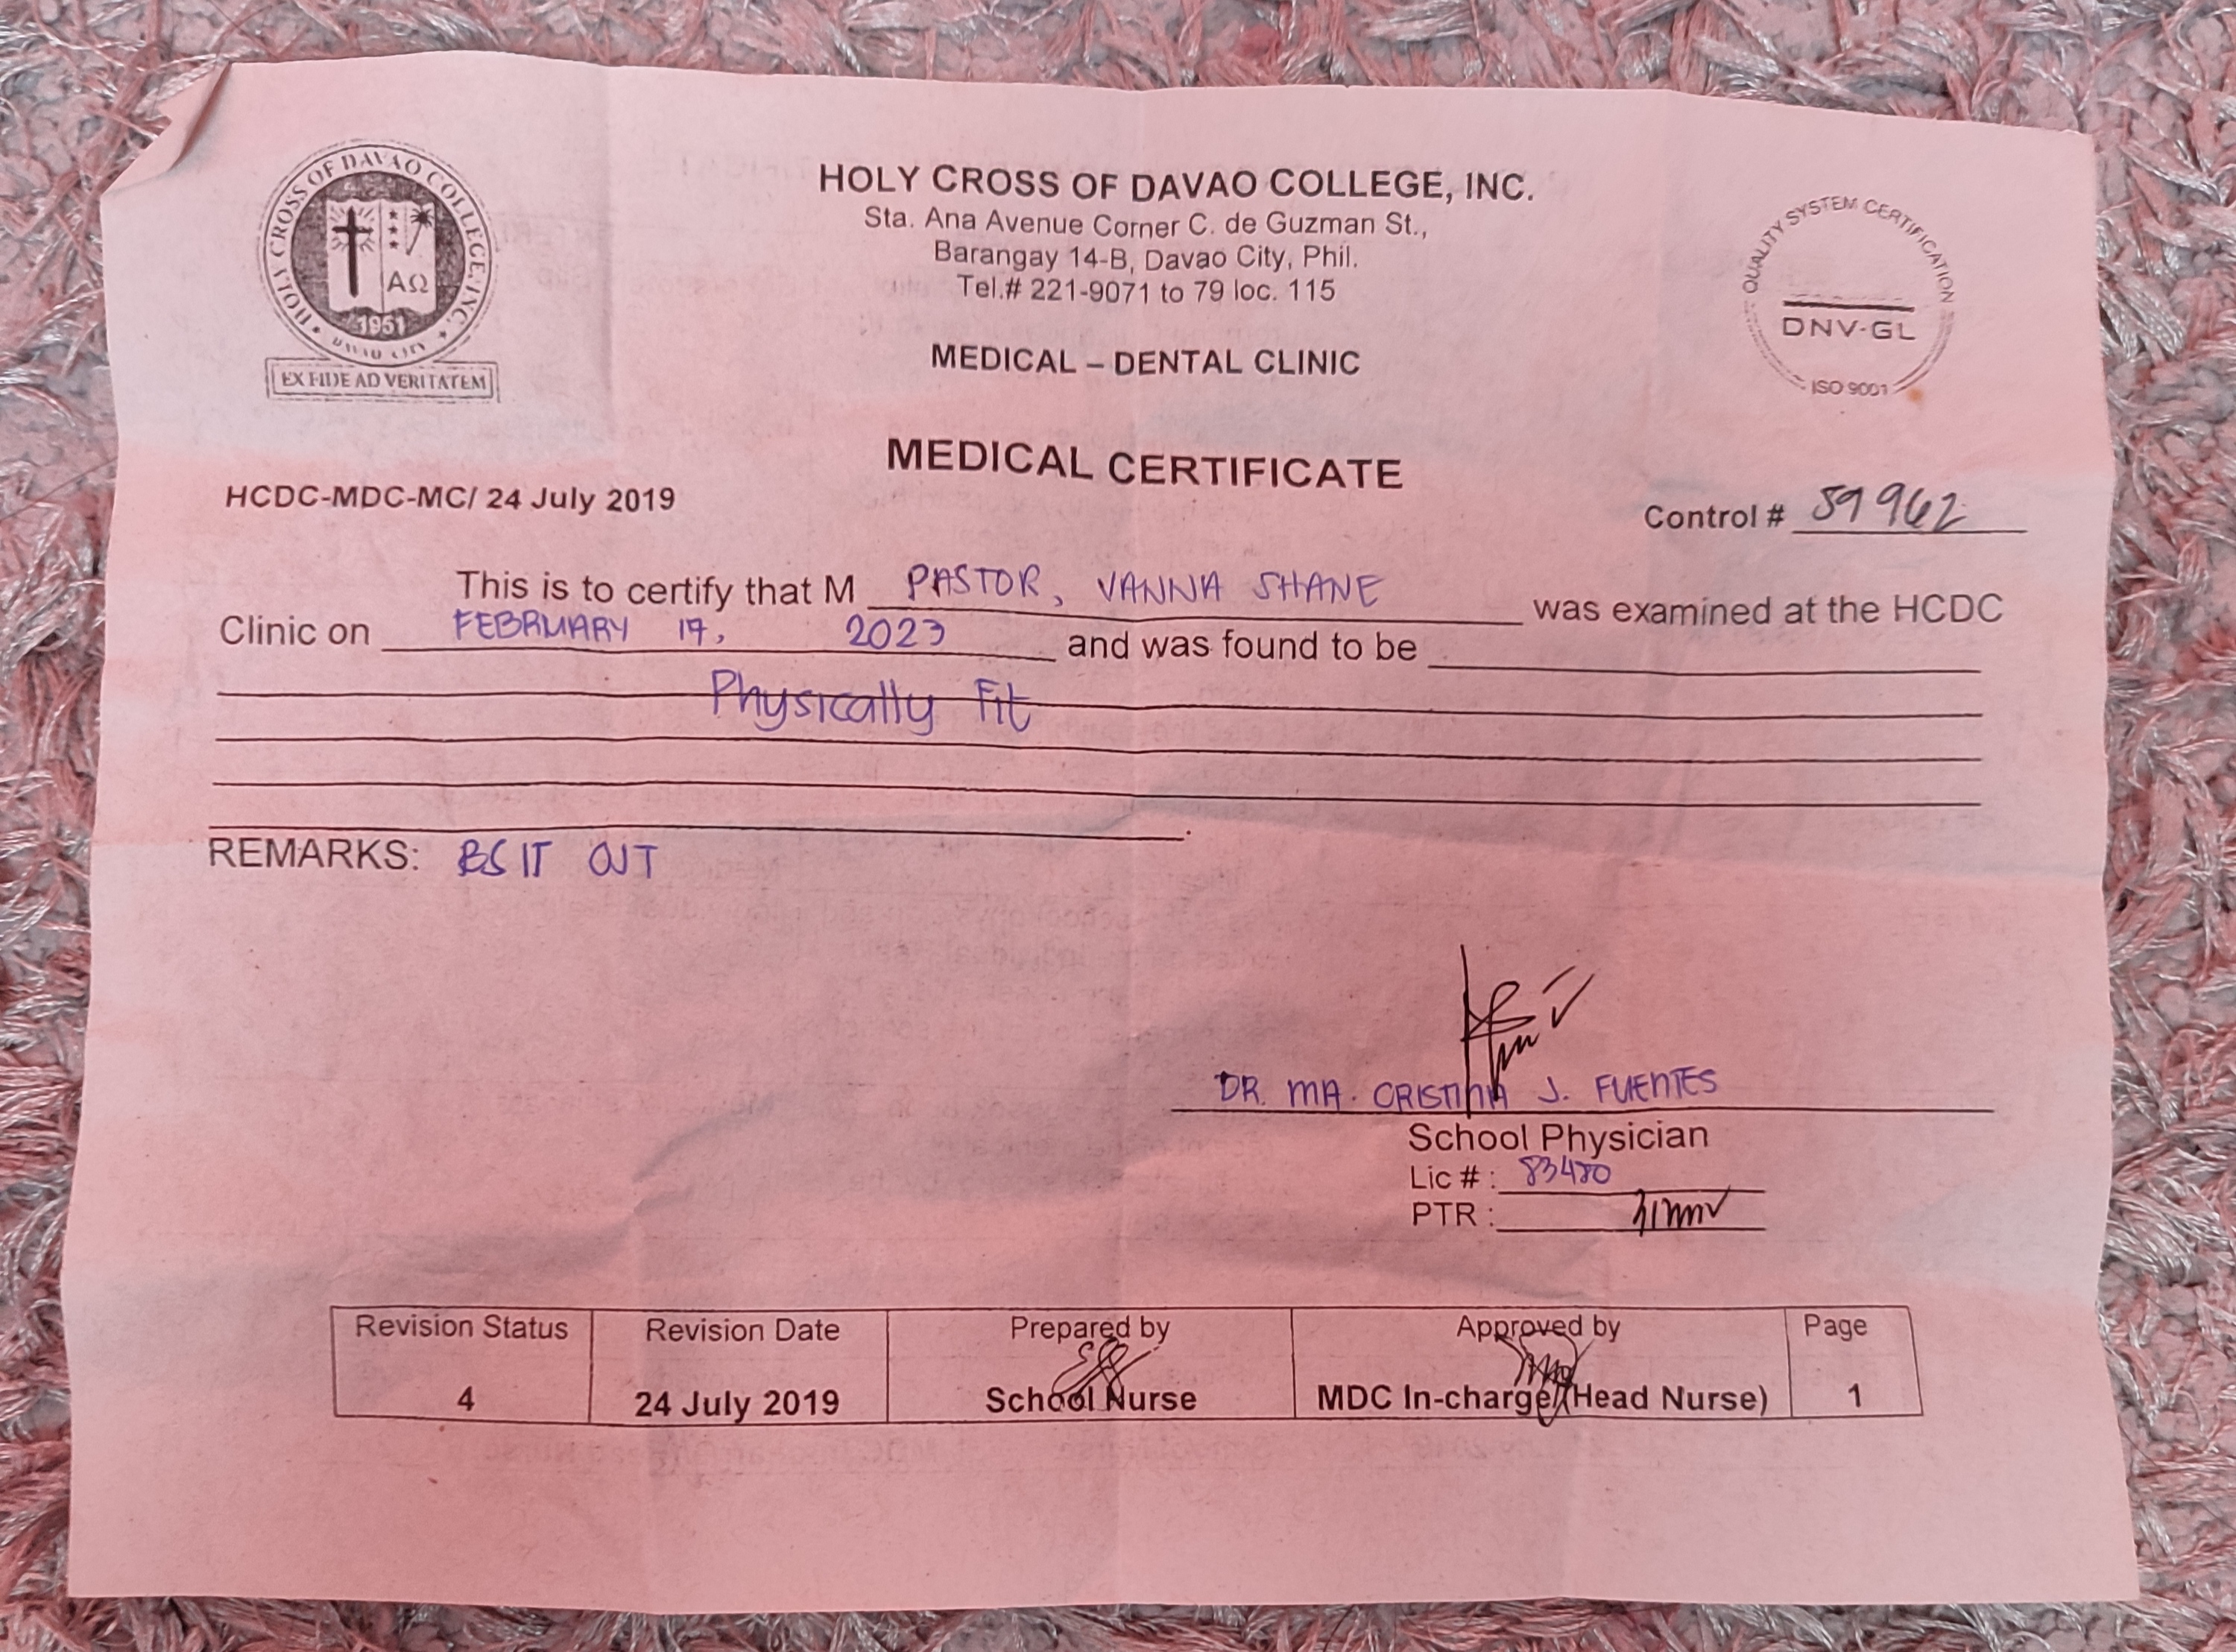 HOLY CROSS OF DAVAO COLLEGE, INC.
1951
DAVAO CITY
AΩ
EX FIDE AD VERITATEM
HOLY CROSS OF DAVAO COLLEGE, INC.
Sta. Ana Avenue Corner C. de Guzman St.,
Barangay 14-B, Davao City, Phil.
Tel.# 221-9071 to 79 loc. 115
MEDICAL – DENTAL CLINIC
QUALITY SYSTEM CERTIFICATION
DNV·GL
ISO 9001
MEDICAL CERTIFICATE
HCDC-MDC-MC/ 24 July 2019
Control # 59962
This is to certify that M PASTOR, VANNA SHANE was examined at the HCDC
Clinic on FEBRUARY 2023 and was found to be
Physically Fit
REMARKS: BSIT OJT
DR. MA. CRISTINA J. FUENTES
School Physician
Lic # : 83480
PTR :
Revision Status Revision Date Prepared by Approved by Page
4 24 July 2019 School Nurse MDC In-charge/(Head Nurse) 1